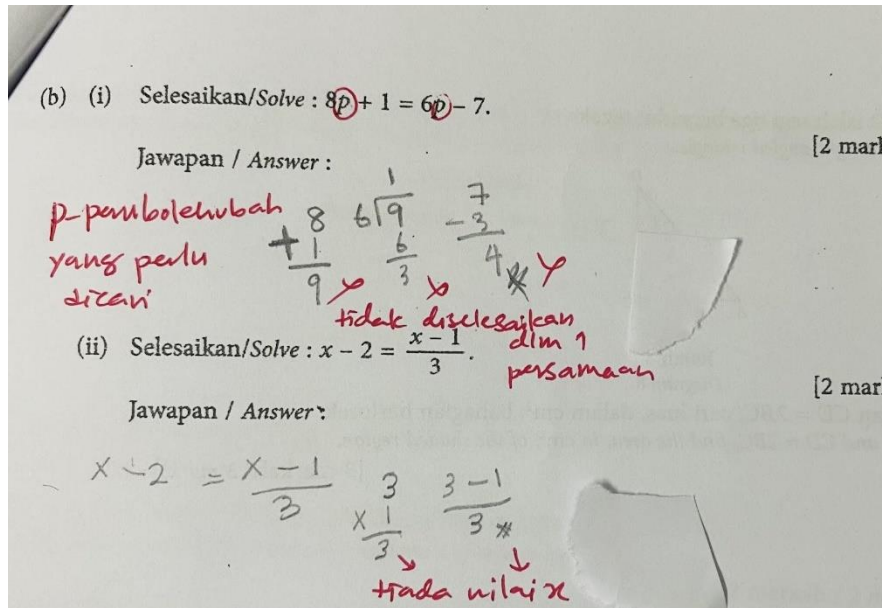 (b) (i) Selesaikan/Solve : 8p + 1 = 6p – 7.
[2 mark
Jawapan / Answer :
p-pembolehubah
yang perlu
dicari
8
+ 1
9
1
6 9
6
3
7
- 3
4
tidak diselesaikan
dlm 1
persamaan
(ii) Selesaikan/Solve : x – 2 = x – 1 / 3 .
[2 mar
Jawapan / Answer :
x - 2 = x - 1 / 3
3
x 1
3
3 - 1
3
tiada nilai x